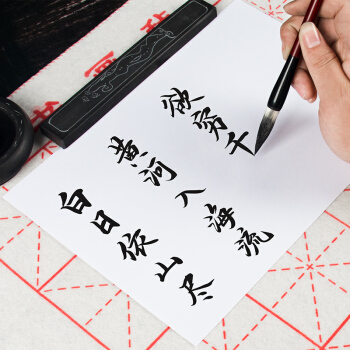 白日依山尽
黄河入海流
欲穷千